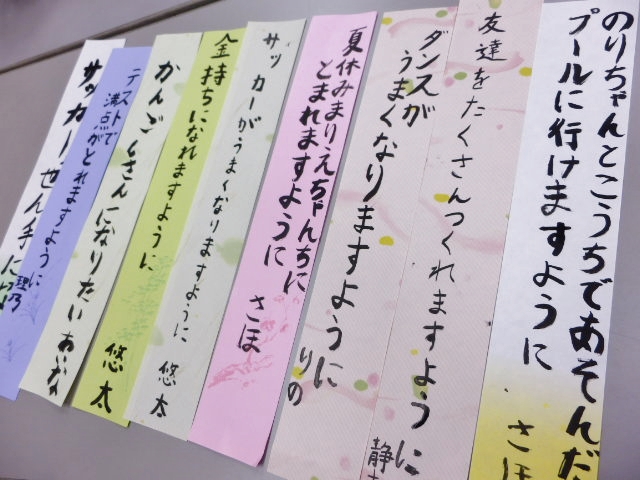 のりちゃんとこうちであそんだ
プールに行けますように
さほ
友達をたくさんつくれますように
ダンスが
うまくなりますように
りの
夏休みまりえちゃんちに
とまれますように
さほ
サッカーがうまくなりますように 悠太
金持ちになれますように
悠太
かんごくさんになりたい
テストで
満点がとれますように
サッカーせん手に